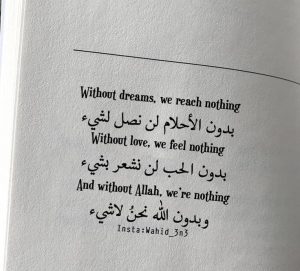 Without dreams, we reach nothing
بدون الأحلام لن نصل لشيء
Without love, we feel nothing
بدون الحب لن نشعر بشيء
And without Allah, we're nothing
وبدون الله نحنُ لاشيء
Insta:Wahid_3m3